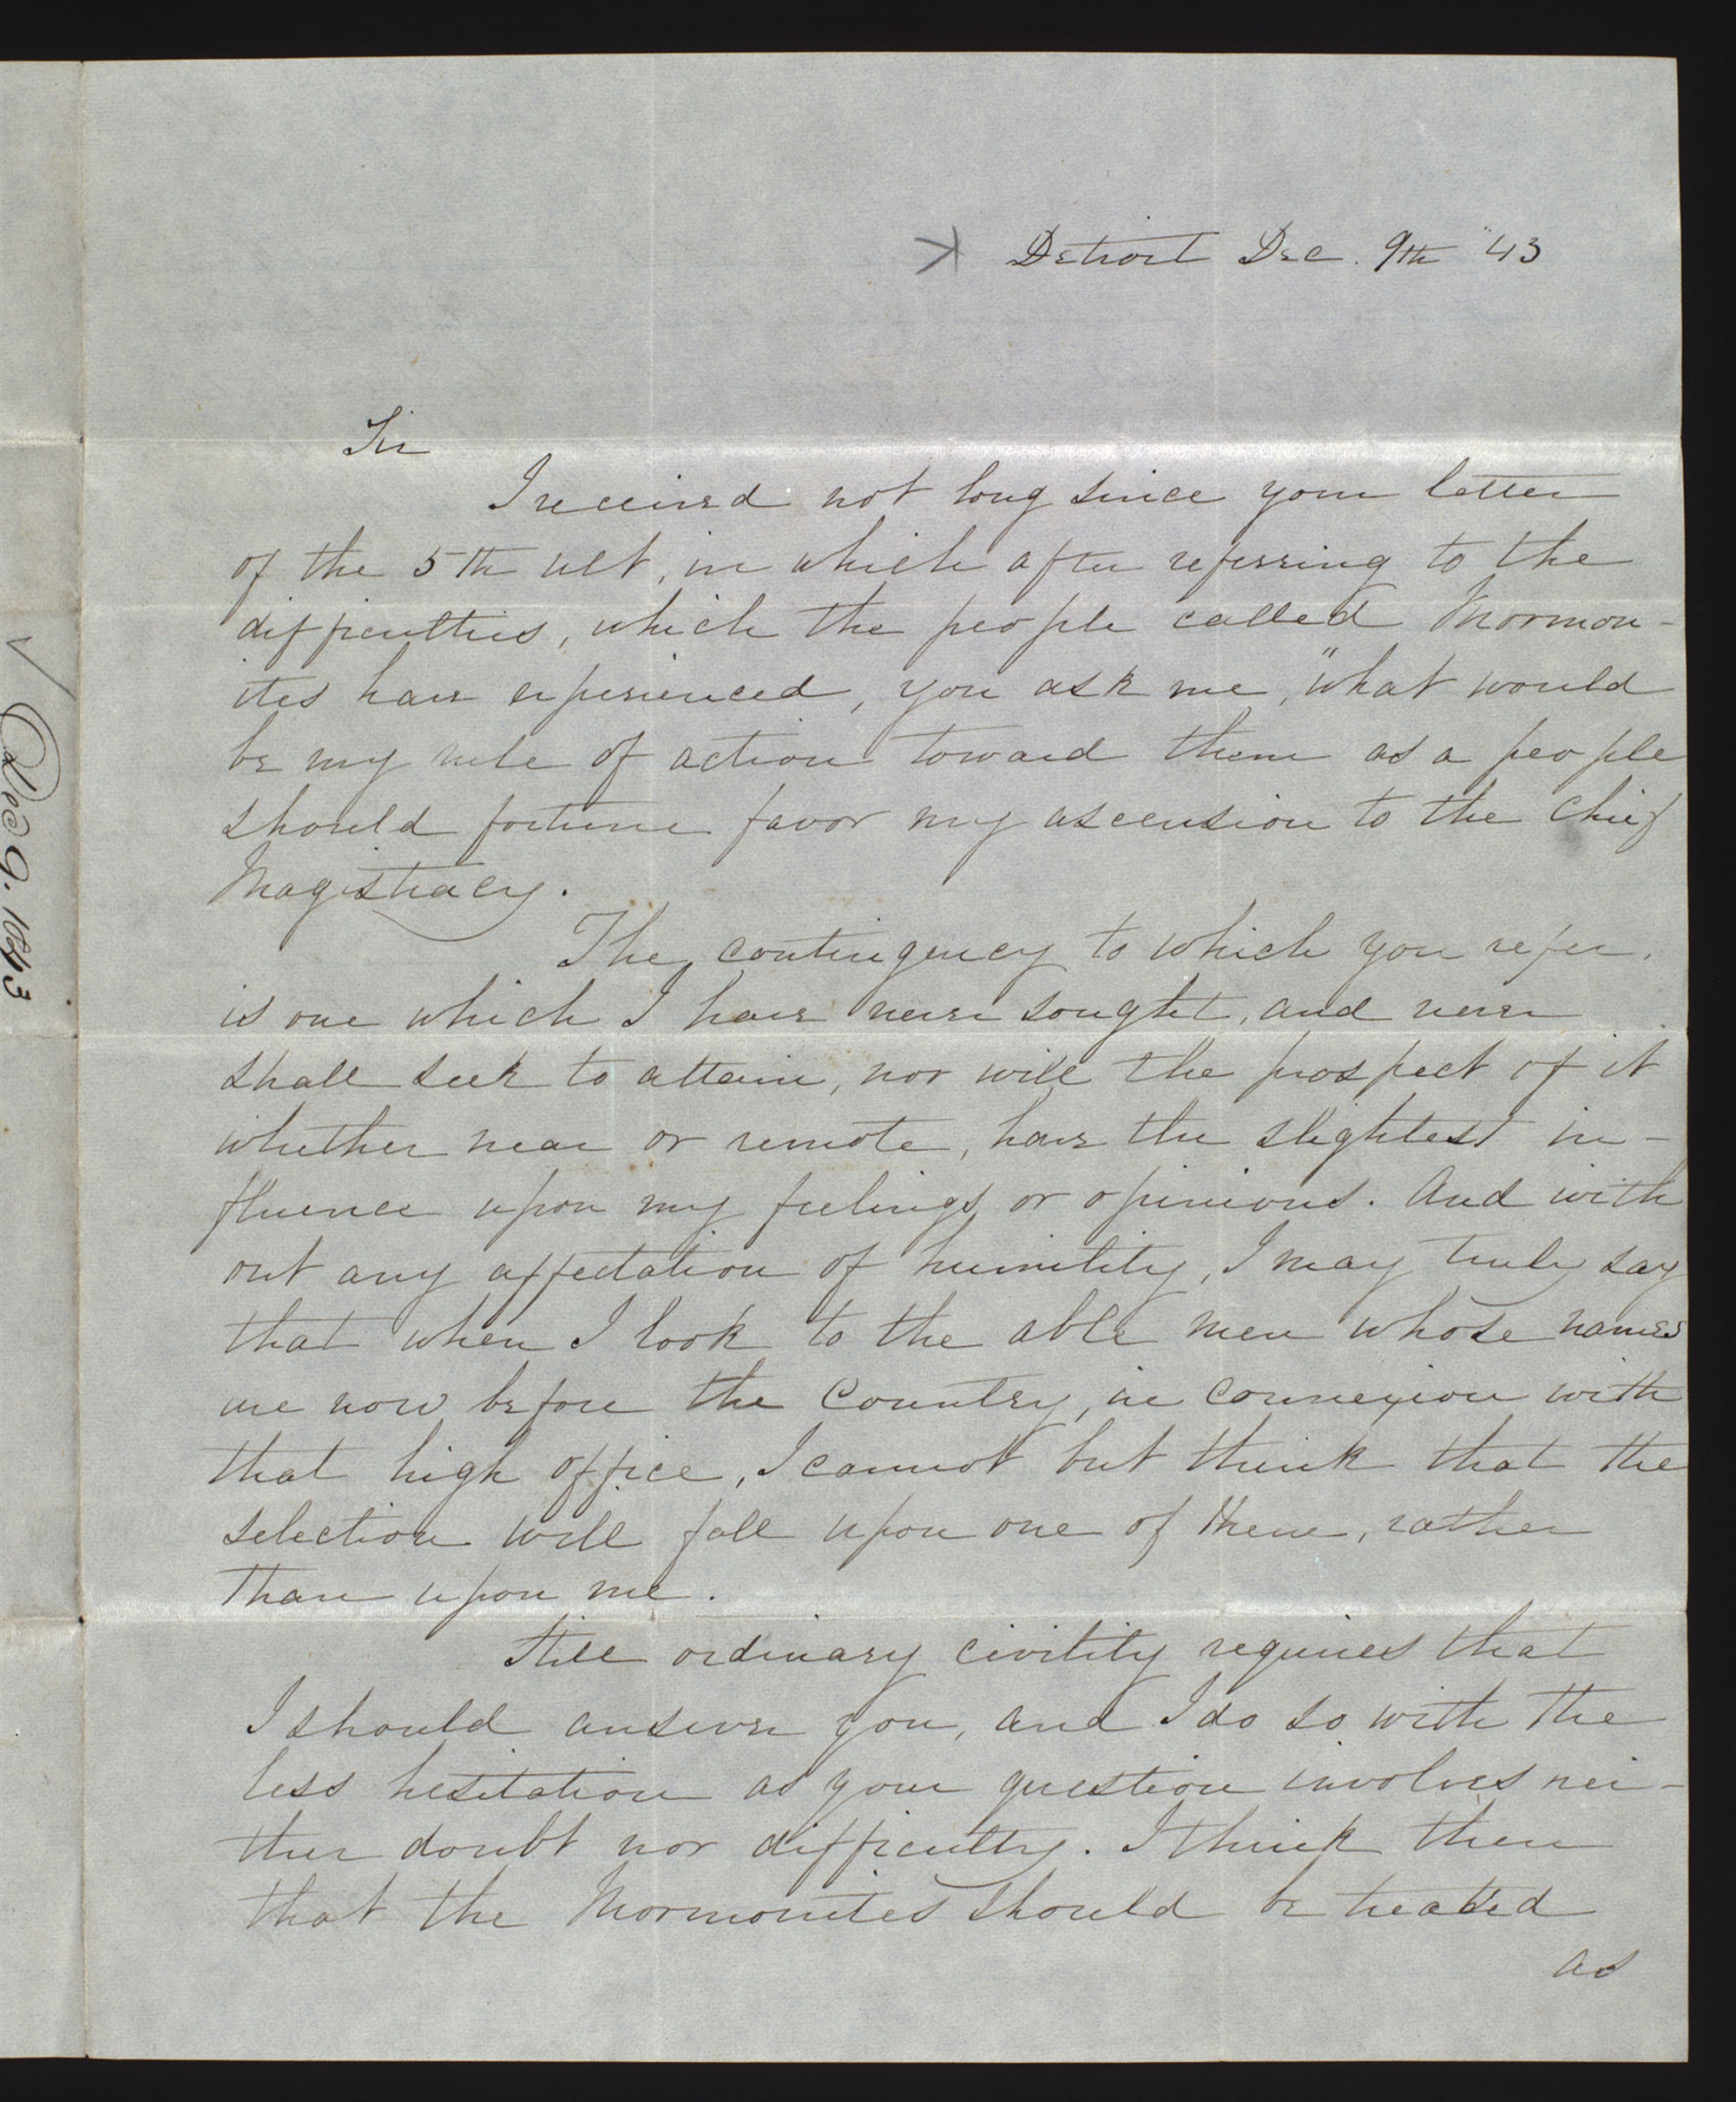 Detroit Dec. 9th "43
Sir
I received not long since your letter
of the 5th ult, in which after referring to the
difficulties, which the people called Mormon-
ites have experienced, you ask me, "what would
be my rule of action toward them as a people
should fortune favor my ascension to the Chief
Magistracy.
The contingency to which you refer,
is one which I have never sought, and never
shall seek to attain, nor will the prospect of it
whether near or remote, have the slightest in-
fluence upon my feelings or opinions. And with
out any affectation of humility, I may truly say
that when I look to the able men whose names
are now before the Country, in connexion with
that high office, I cannot but think that the
selection will fall upon one of them, rather
than upon me.
Still ordinary civility requires that
I should answer you, and I do so with the
less hesitation as your question involves nei-
ther doubt nor difficulty. I think then
that the Mormonites should be treated
as
Dec 9. 1843